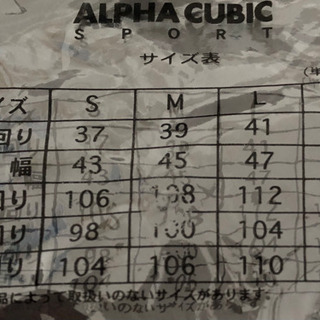 ALPHA CUBIC
SPORT
サイズ表
イズ S M L
回り 37 39 41
幅 43 45 47
回り 106 108 112
回り 98 100 104
り 104 106 110
品によって取扱いのないサイズがあります。